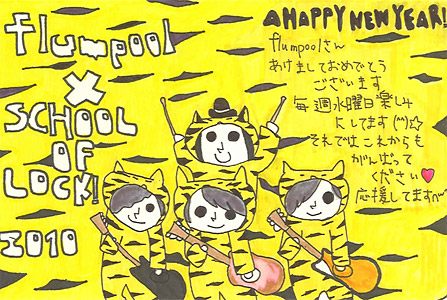 flumpool
×
SCHOOL
OF
LOCK!
2010
A HAPPY NEW YEAR!
flumpoolさん
あけましておめでとう
ございます
毎週水曜日楽しみ
にしてます(^^)☆
それではこれからも
がんばって
ください♥
応援してますm